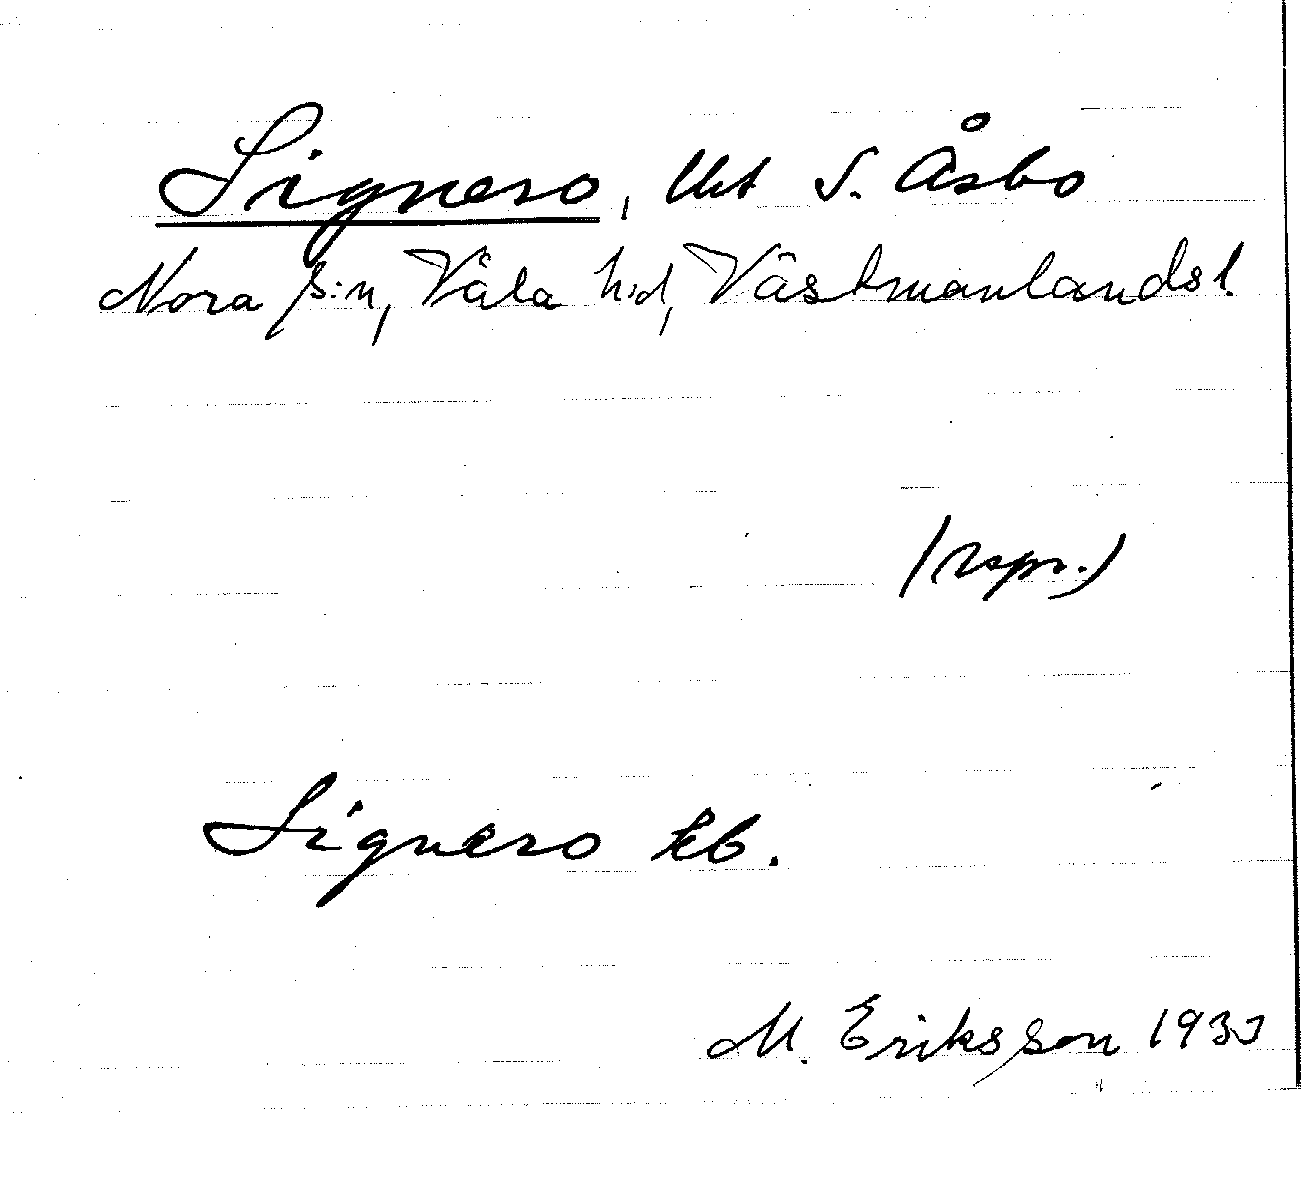 Signero, Ut S. Åsbo
Nora s:n, Våla h:d, Västmanlands l.
(Uspr.)
Signero kb.
M. Eriksson 1933